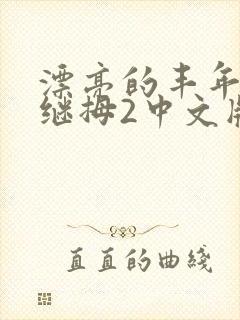 漂亮的丰年
继拇2中文版
直直的曲綫